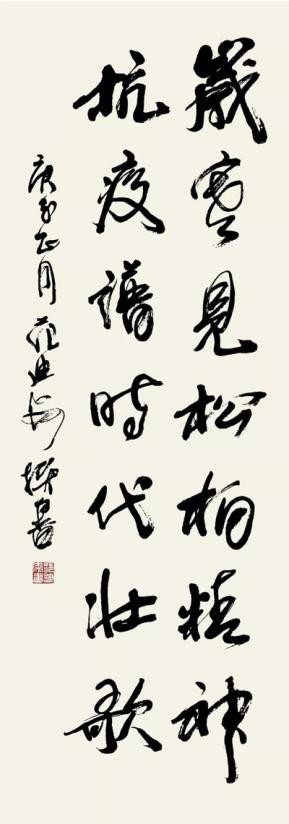 岁寒见松柏精神
抗疫谱时代壮歌
庚子正月范迪安撰书